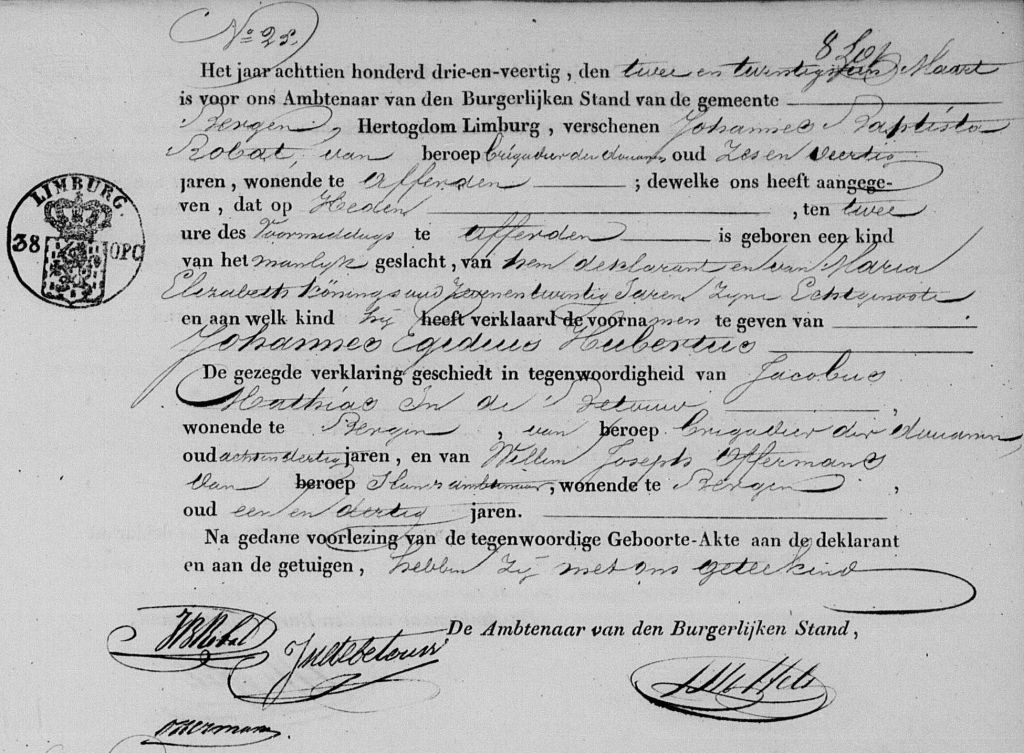 No 25.
Het jaar achttien honderd drie-en-veertig, den twee en twintigsten Maart
is voor ons Ambtenaar van den Burgerlijken Stand van de gemeente
Bergen, Hertogdom Limburg, verschenen Johannes Baptista
Robat, van beroep brigadier der douanen, oud Zes en veertig
jaren, wonende te Afferden ; dewelke ons heeft aangege-
ven, dat op Heden , ten twee
ure des Voormiddags te Afferden is geboren een kind
van het manlijk geslacht, van hem deklarant en van Maria
Elizabeth Könings oud Zevenentwintig Jaren Zijne Echtgenoote
en aan welk kind hij heeft verklaard de voornamen te geven van
Johannes Egidius Hubertus
De gezegde verklaring geschiedt in tegenwoordigheid van Jacobus
Mathias In de Betouw ,
wonende te Bergen, van beroep brigadier der douanen
oud achtendertig jaren, en van Willem Joseph Offermans
van beroep ambtenaar, wonende te Bergen ,
oud een en dertig jaren.
Na gedane voorlezing van de tegenwoordige Geboorte-Akte aan de deklarant
en aan de getuigen, hebben Zij met ons geteekend
De Ambtenaar van den Burgerlijken Stand,
JB Robat
Indebetouw
Offermans
LIMBURG.
38 10PC